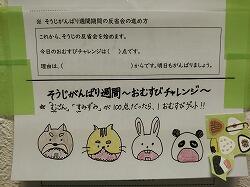 ※ そうじがんばり週間期間の反省会の進め方
これから、そうじの反省会を始めます。
今日のおむすびチャレンジは( )点です。
理由は、( )からです。明日もがんばりましょう。
そうじがんばり週間～おむすびチャレンジ～
※ "むごん" "すみずみ" が100点だったら、1おむすびゲット!!